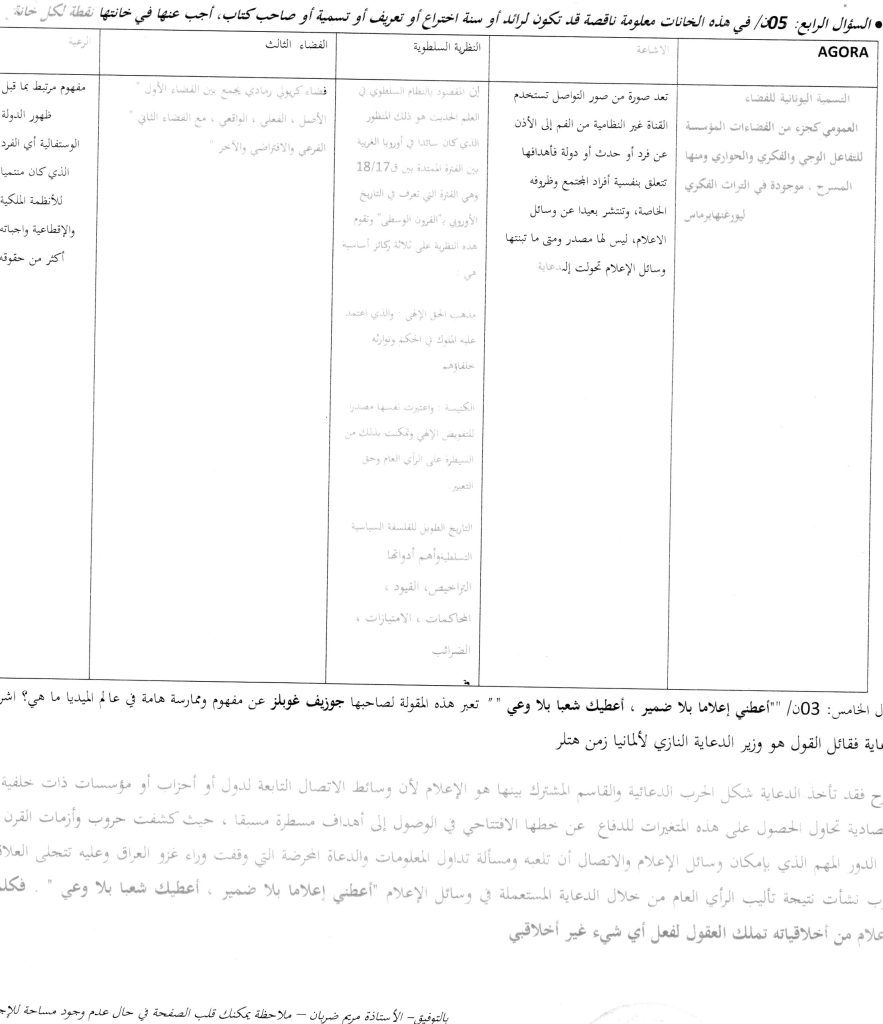 • السؤال الرابع: 05ن/ في هذه الخانات معلومة ناقصة قد تكون لرائد أو سنة اختراع أو تعريف أو تسمية أو صاحب كتاب، أجب عنها في خانتها نقطة لكل خانة
AGORA
التسمية اليونانية للفضاء
العمومي كجزء من الفضاءات المؤسسة
للتفاعل الوجي والفكري والحواري ومنها
المسرح ، موجودة في التراث الفكري
ليورغنهابرماس
الاشاعة
تعد صورة من صور التواصل تستخدم
القناة غير النظامية من الفم إلى الأذن
عن فرد أو حدث أو دولة فأهدافها
تتعلق بنفسية أفراد المجتمع وظروفه
الخاصة، وتنتشر بعيدا عن وسائل
الاعلام، ليس لها مصدر ومتى ما تبنتها
وسائل الإعلام تحولت إلى دعاية
النظرية السلطوية
إن المقصود بالنظام السلطوي في
العلم الحديث هو ذلك المنظور
الذي كان سائدا في أوروبا الغربية
بين الفترة الممتدة بين ق18/17
وهي الفترة التي تعرف في التاريخ
الأوروبي بـ"القرون الوسطى" وتقوم
هذه النظرية على ثلاثة ركائز أساسية
هي :
مذهب الحق الإلهي : والذي اعتمد
عليه الملوك في الحكم وتوارثه
خلفاؤهم
الكنيسة : واعتبرت نفسها مصدرا
للتفويض الإلهي وتمكنت بذلك من
السيطرة على الرأي العام وحق
التعبير.
التاريخ الطويل للفلسفة السياسية
التسلطية وأهم أدواتها
التراخيص، القيود ،
المحاكمات ، الامتيازات ،
الضرائب
الفضاء الثالث
فضاء كريوني رمادي يجمع بين الفضاء الأول "
الأصل ، الفعلي ، الواقعي ، مع الفضاء الثاني "
الفرعي والافتراضي والآخر "
الرعية
مفهوم مرتبط بما قبل
ظهور الدولة
الوستفالية أي الفرد
الذي كان منتميا
للأنظمة الملكية
والإقطاعية واجباته
أكثر من حقوقه
ل الخامس: 03ن/ ""أعطني إعلاما بلا ضمير ، أعطيك شعبا بلا وعي "" تعبر هذه المقولة لصاحبها جوزيف غوبلز عن مفهوم وممارسة هامة في عالم الميديا ما هي؟ اشر
عاية فقائل القول هو وزير الدعاية النازي لألمانيا زمن هتلر
ح فقد تأخذ الدعاية شكل الحرب الدعائية والقاسم المشترك بينها هو الإعلام لأن وسائط الاتصال التابعة لدول أو أحزاب أو مؤسسات ذات خلفية
صادية تحاول الحصول على هذه المتغيرات للدفاع عن خطها الافتتاحي في الوصول إلى أهداف مسطرة مسبقا ، حيث كشفت حروب وأزمات القرن
الدور المهم الذي بإمكان وسائل الإعلام والاتصال أن تلعبه ومسألة تداول المعلومات والدعاة المحرضة التي وقفت وراء غزو العراق وعليه تتجلى العلاق
ب نشأت نتيجة تأليب الرأي العام من خلال الدعاية المستعملة في وسائل الإعلام "أعطني إعلاما بلا ضمير ، أعطيك شعبا بلا وعي " . فكلم
علام من أخلاقياته تملك العقول لفعل أي شيء غير أخلاقي
بالتوفيق- الأستاذة مريم ضربان – ملاحظة يمكنك قلب الصفحة في حال عدم وجود مساحة للإج